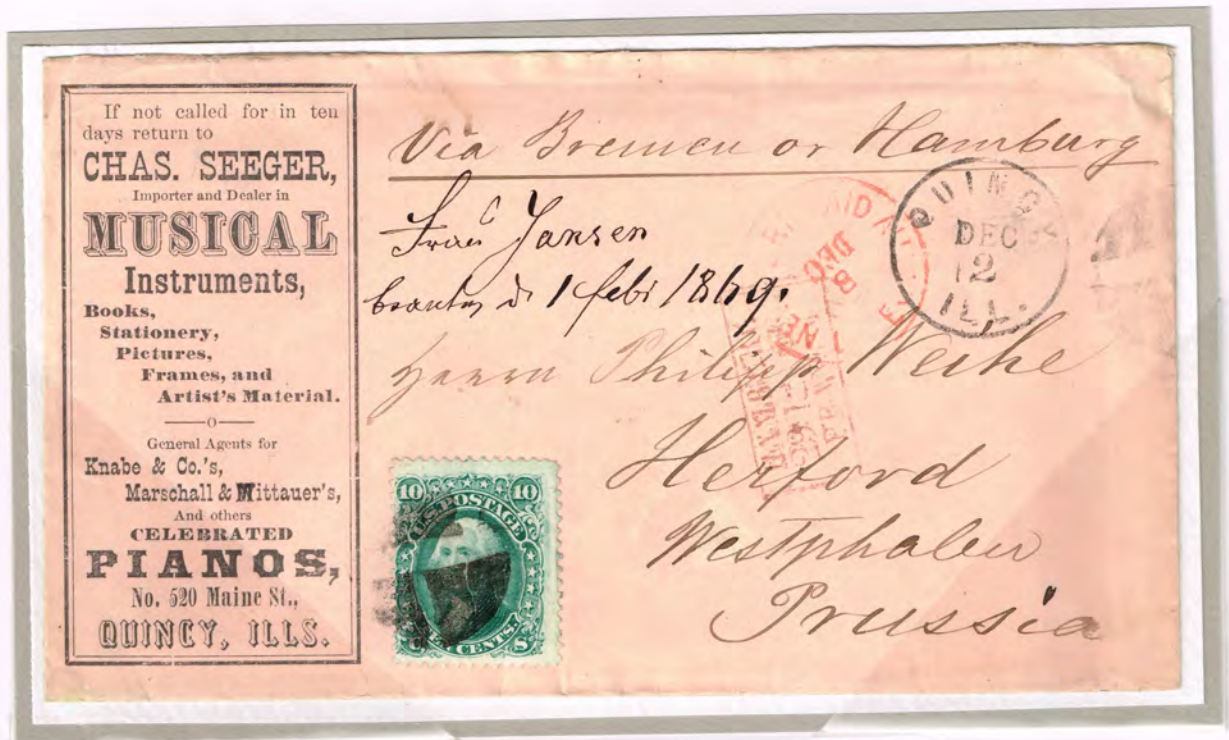 If not called for in ten
days return to
CHAS. SEEGER,
Importer and Dealer in
MUSICAL
Instruments,
Books,
Stationery,
Pictures,
Frames, and
Artist's Material.
—o—
General Agents for
Knabe & Co.'s,
Marschall & Mittauer's,
And others
CELEBRATED
PIANOS,
No. 520 Maine St.,
QUINCY, ILLS.
Via Bremen or Hamburg
Jansen
1 febr 1869.
Herrn Philipp Weihe
Herford
Westphalen
Prussia
QUINCY
DEC
12
ILL.
PAID ALL
DEC
8
10 10
U.S. POSTAGE
TEN CENTS.
U S